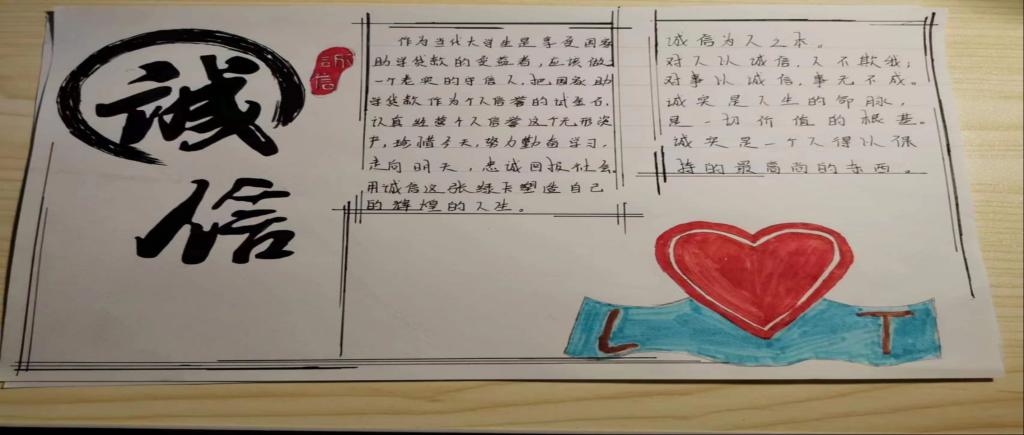 诚
信
誠
信
作为当代大学生是享受国家
助学贷款的受益者，应该做
一个老实的守信人，把国家助
学贷款作为个人信誉的试金石，
认真经营个人信誉这个无形资
产，珍惜今天，努力勤奋学习，
走向明天，忠诚回报社会
用诚信这张绿卡塑造自己
的辉煌的人生。
诚信为人之本。
对人以诚信，人不欺我；
对事以诚信，事无不成。
诚实是人生的命脉，
是一切价值的根基。
诚实是一个人得以保
持的最高尚的东西。
L T